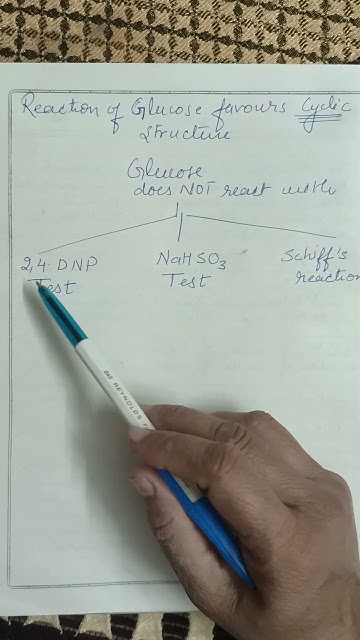 Reaction of Glucose favours Cyclic
structure
Glucose
does NOT react with
2,4-DNP
Test
NaHSO3
Test
Schiff's
reaction
045 REYNOLDS